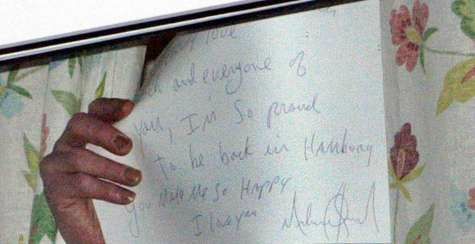 love
and everyone of
you, I'm so proud
to be back in Hamburg
you Make Me So Happy
I love you